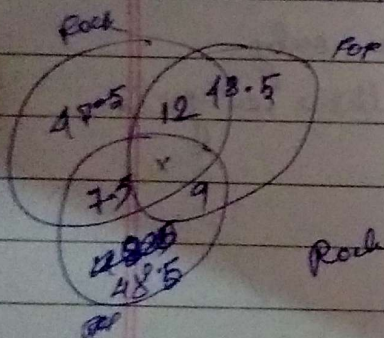 Rock
Pop
47.5
12
43.5
x
7.5
9
48.5
Rock